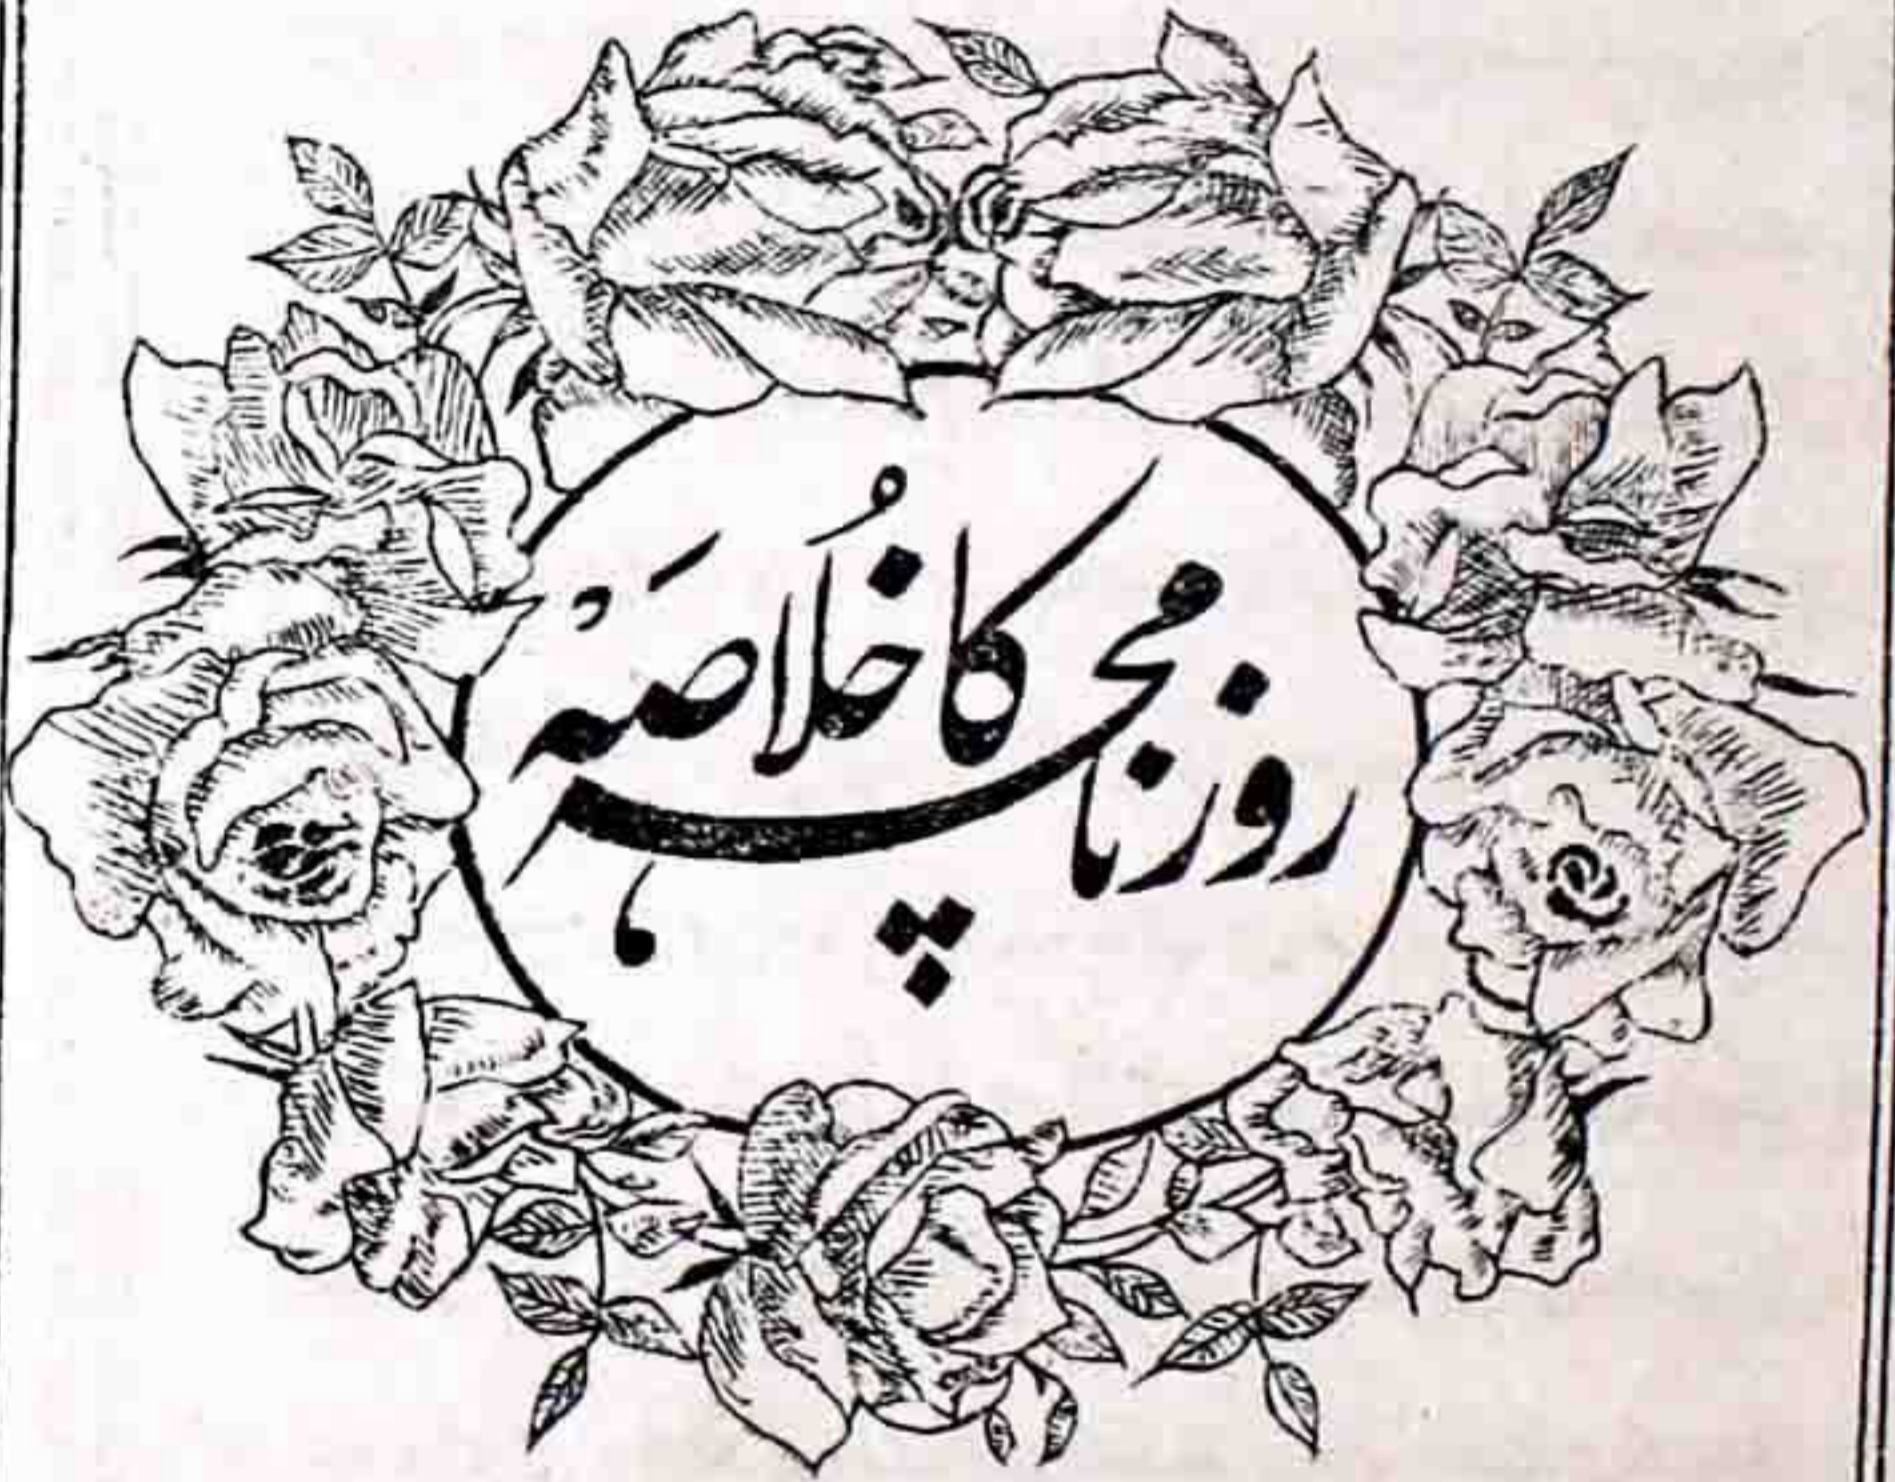 روزنامچہ کا خُلاصَہ